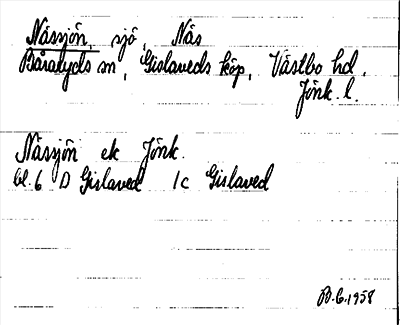 Nässjön, sjö, Näs
Båraryds sn, Gislaveds köp, Västbo hd.
Jönk. l.
Nässjön ek Jönk.
bl. 6 D Gislaved 1c Gislaved
B.G. 1958